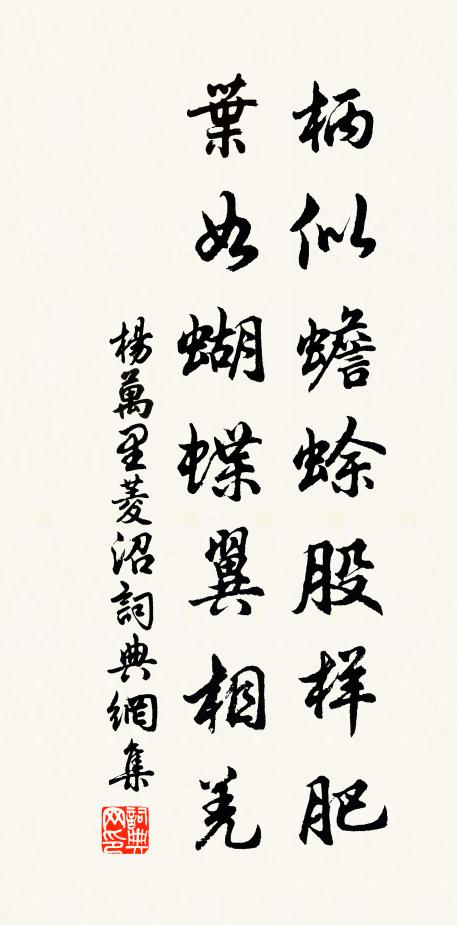 柄似蟾蜍股样肥
葉如蝴蝶翼相差
楊萬里菱沼詞典網集
詞典
网印